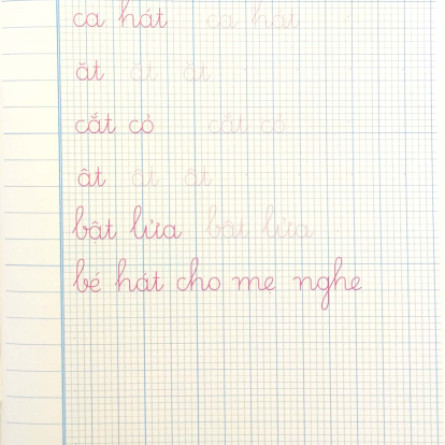 ca hát ca hát
ăt ăt ăt
cắt cỏ cắt cỏ
ât ât ât
bật lửa bật lửa
bé hát cho mẹ nghe